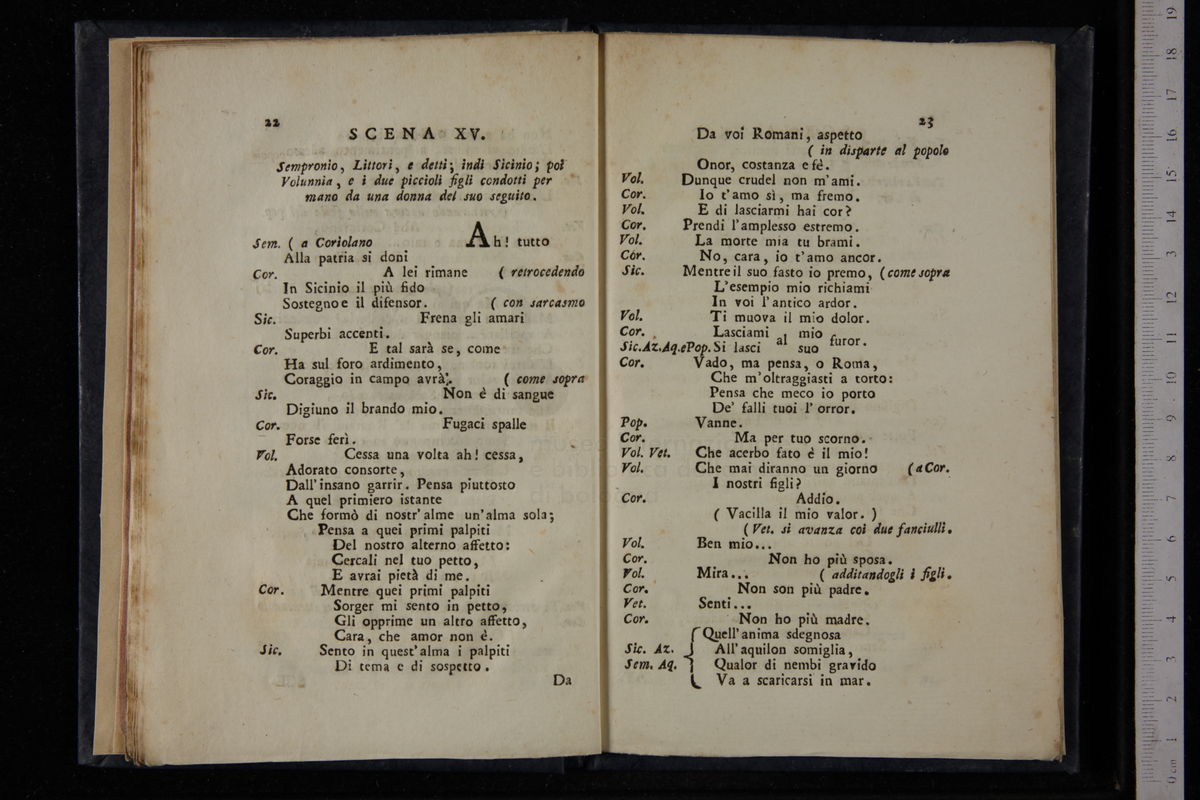 22
SCENA XV.
Sempronio, Littori, e detti; indi Sicinio; poi
Volunnia, e i due piccioli figli condotti per
mano da una donna del suo seguito.
Sem. ( a Coriolano Ah! tutto
Alla patria si doni
Cor. A lei rimane ( retrocedendo
In Sicinio il più fido
Sostegno e il difensor. ( con sarcasmo
Sic. Frena gli amari
Superbi accenti.
Cor. E tal sarà se, come
Ha sul foro ardimento,
Coraggio in campo avrà. ( come sopra
Sic. Non è di sangue
Digiuno il brando mio.
Cor. Fugaci spalle
Forse ferì.
Vol. Cessa una volta ah! cessa,
Adorato consorte,
Dall'insano garrir. Pensa piuttosto
A quel primiero istante
Che formò di nostr'alme un'alma sola;
Pensa a quei primi palpiti
Del nostro alterno affetto:
Cercali nel tuo petto,
E avrai pietà di me.
Cor. Mentre quei primi palpiti
Sorger mi sento in petto,
Gli opprime un altro affetto,
Cara, che amor non è.
Sic. Sento in quest'alma i palpiti
Di tema e di sospetto.
Da
23
Da voi Romani, aspetto
( in disparte al popolo
Onor, costanza e fè.
Vol. Dunque crudel non m'ami.
Cor. Io t'amo sì, ma fremo.
Vol. E di lasciarmi hai cor?
Cor. Prendi l'amplesso estremo.
Vol. La morte mia tu brami.
Cor. No, cara, io t'amo ancor.
Sic. Mentre il suo fasto io premo, ( come sopra
L'esempio mio richiami
In voi l'antico ardor.
Vol. Ti muova il mio dolor.
Cor. Lasciami al mio furor.
Sic. Az. Aq. e Pop. Si lasci al suo furor.
Cor. Vado, ma pensa, o Roma,
Che m'oltraggiasti a torto:
Pensa che meco io porto
De' falli tuoi l'orror.
Pop. Vanne.
Cor. Ma per tuo scorno.
Vol. Vet. Che acerbo fato è il mio!
Vol. Che mai diranno un giorno ( a Cor.
I nostri figli?
Cor. Addio.
( Vacilla il mio valor. )
( Vet. si avanza coi due fanciulli.
Vol. Ben mio...
Cor. Non ho più sposa.
Vol. Mira... ( additandogli i figli.
Cor. Non son più padre.
Vet. Senti...
Cor. Non ho più madre.
Quell'anima sdegnosa
Sic. Az. All'aquilon somiglia,
Sem. Aq. Qualor di nembi gravido
Va a scaricarsi in mar.